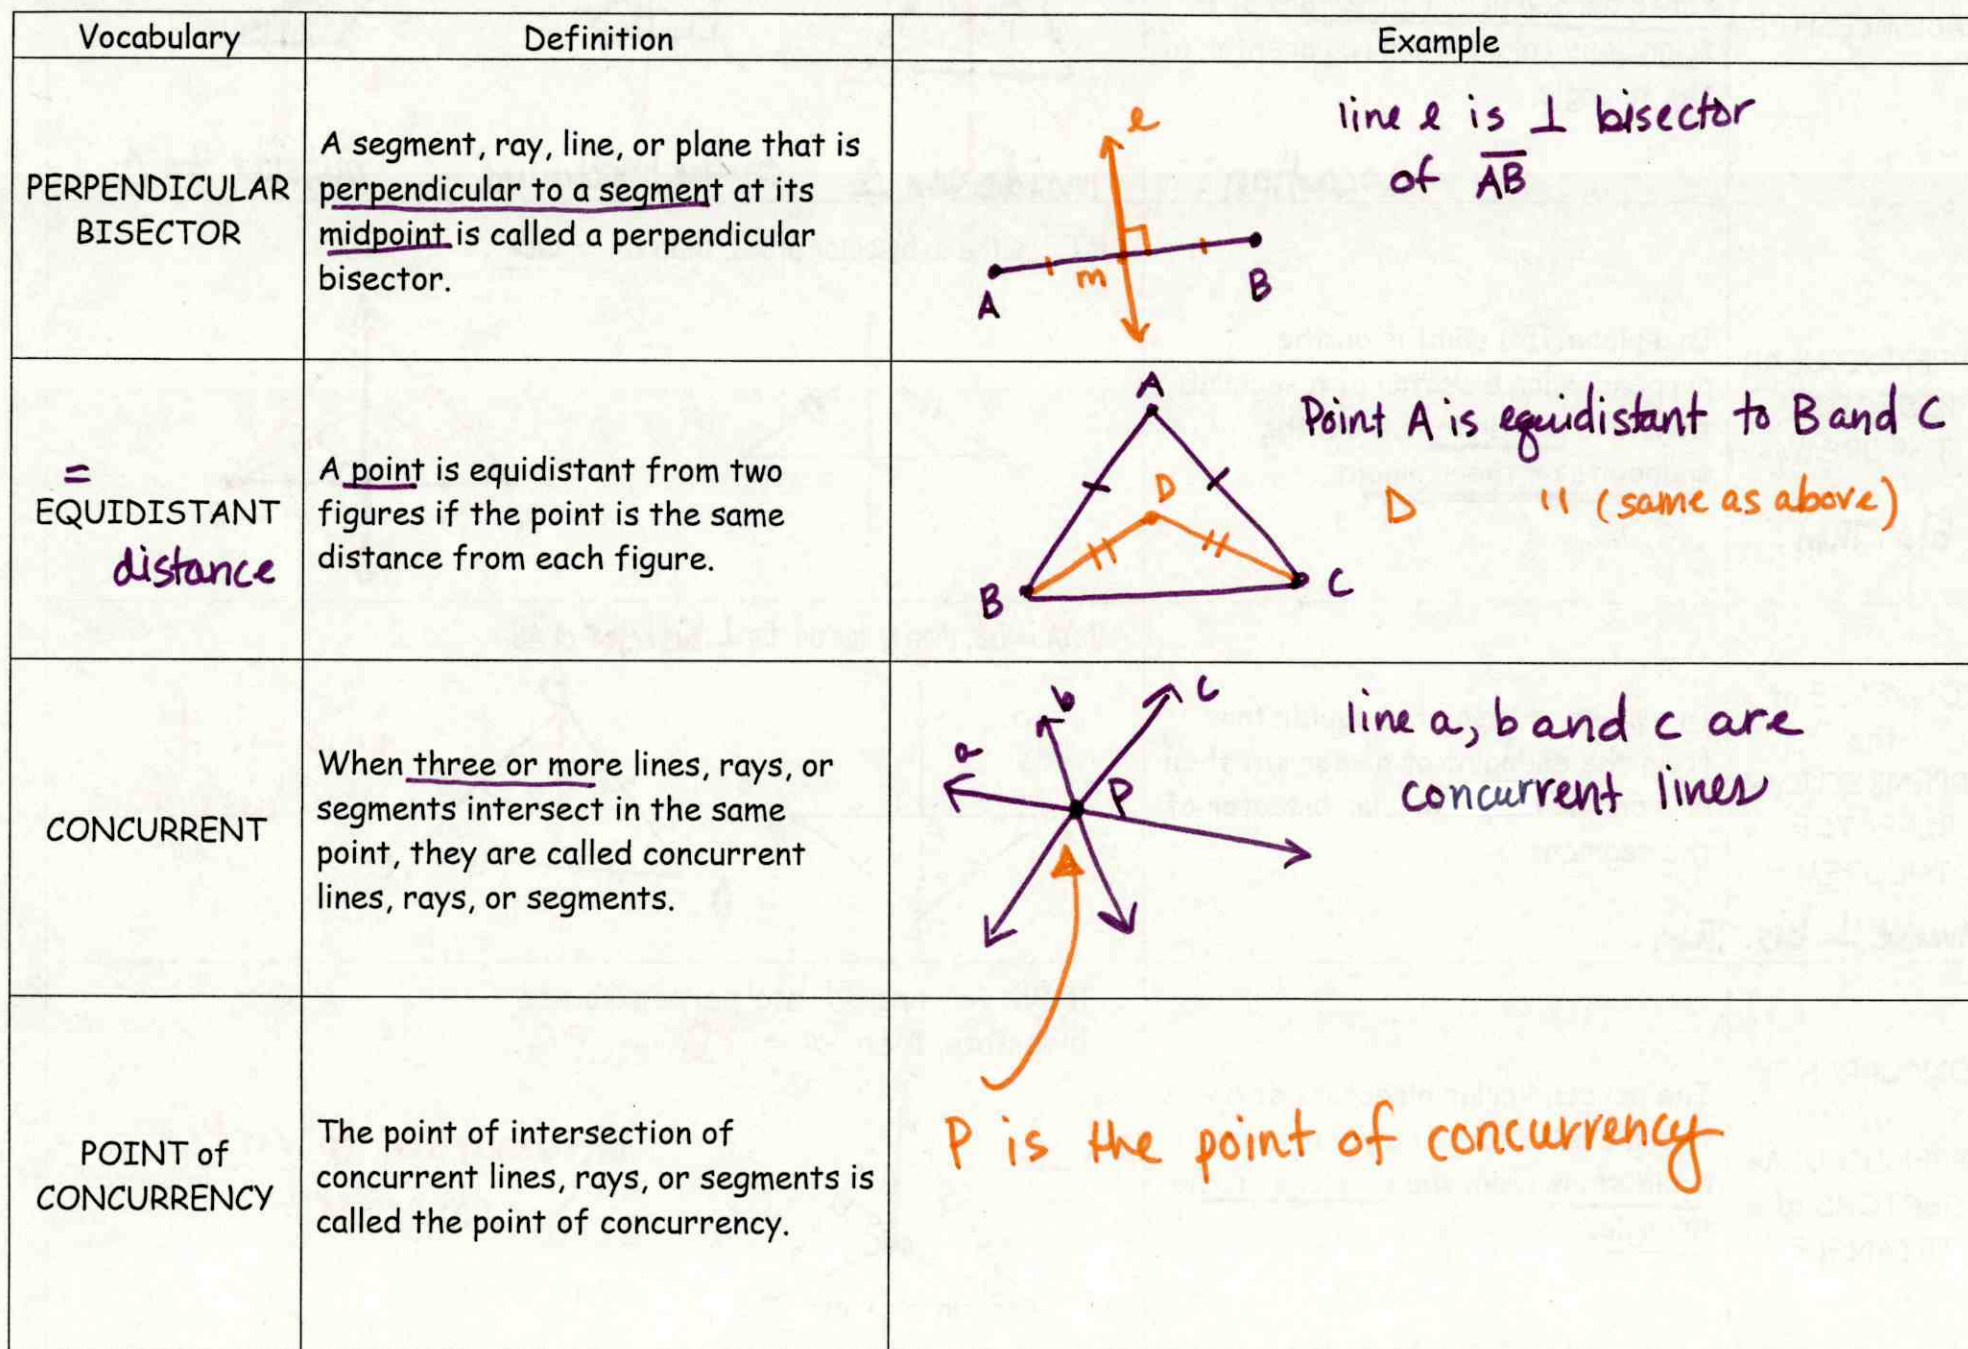 Vocabulary
Definition
Example
PERPENDICULAR
BISECTOR
A segment, ray, line, or plane that is
perpendicular to a segment at its
midpoint is called a perpendicular
bisector.
line ℓ is ⊥ bisector
of A̅B̅
ℓ
m
A
B
=
EQUIDISTANT
distance
A point is equidistant from two
figures if the point is the same
distance from each figure.
A
D
B
C
Point A is equidistant to B and C
D " (same as above)
CONCURRENT
When three or more lines, rays, or
segments intersect in the same
point, they are called concurrent
lines, rays, or segments.
a
b
c
P
line a, b and c are
concurrent lines
POINT of
CONCURRENCY
The point of intersection of
concurrent lines, rays, or segments is
called the point of concurrency.
P is the point of concurrency